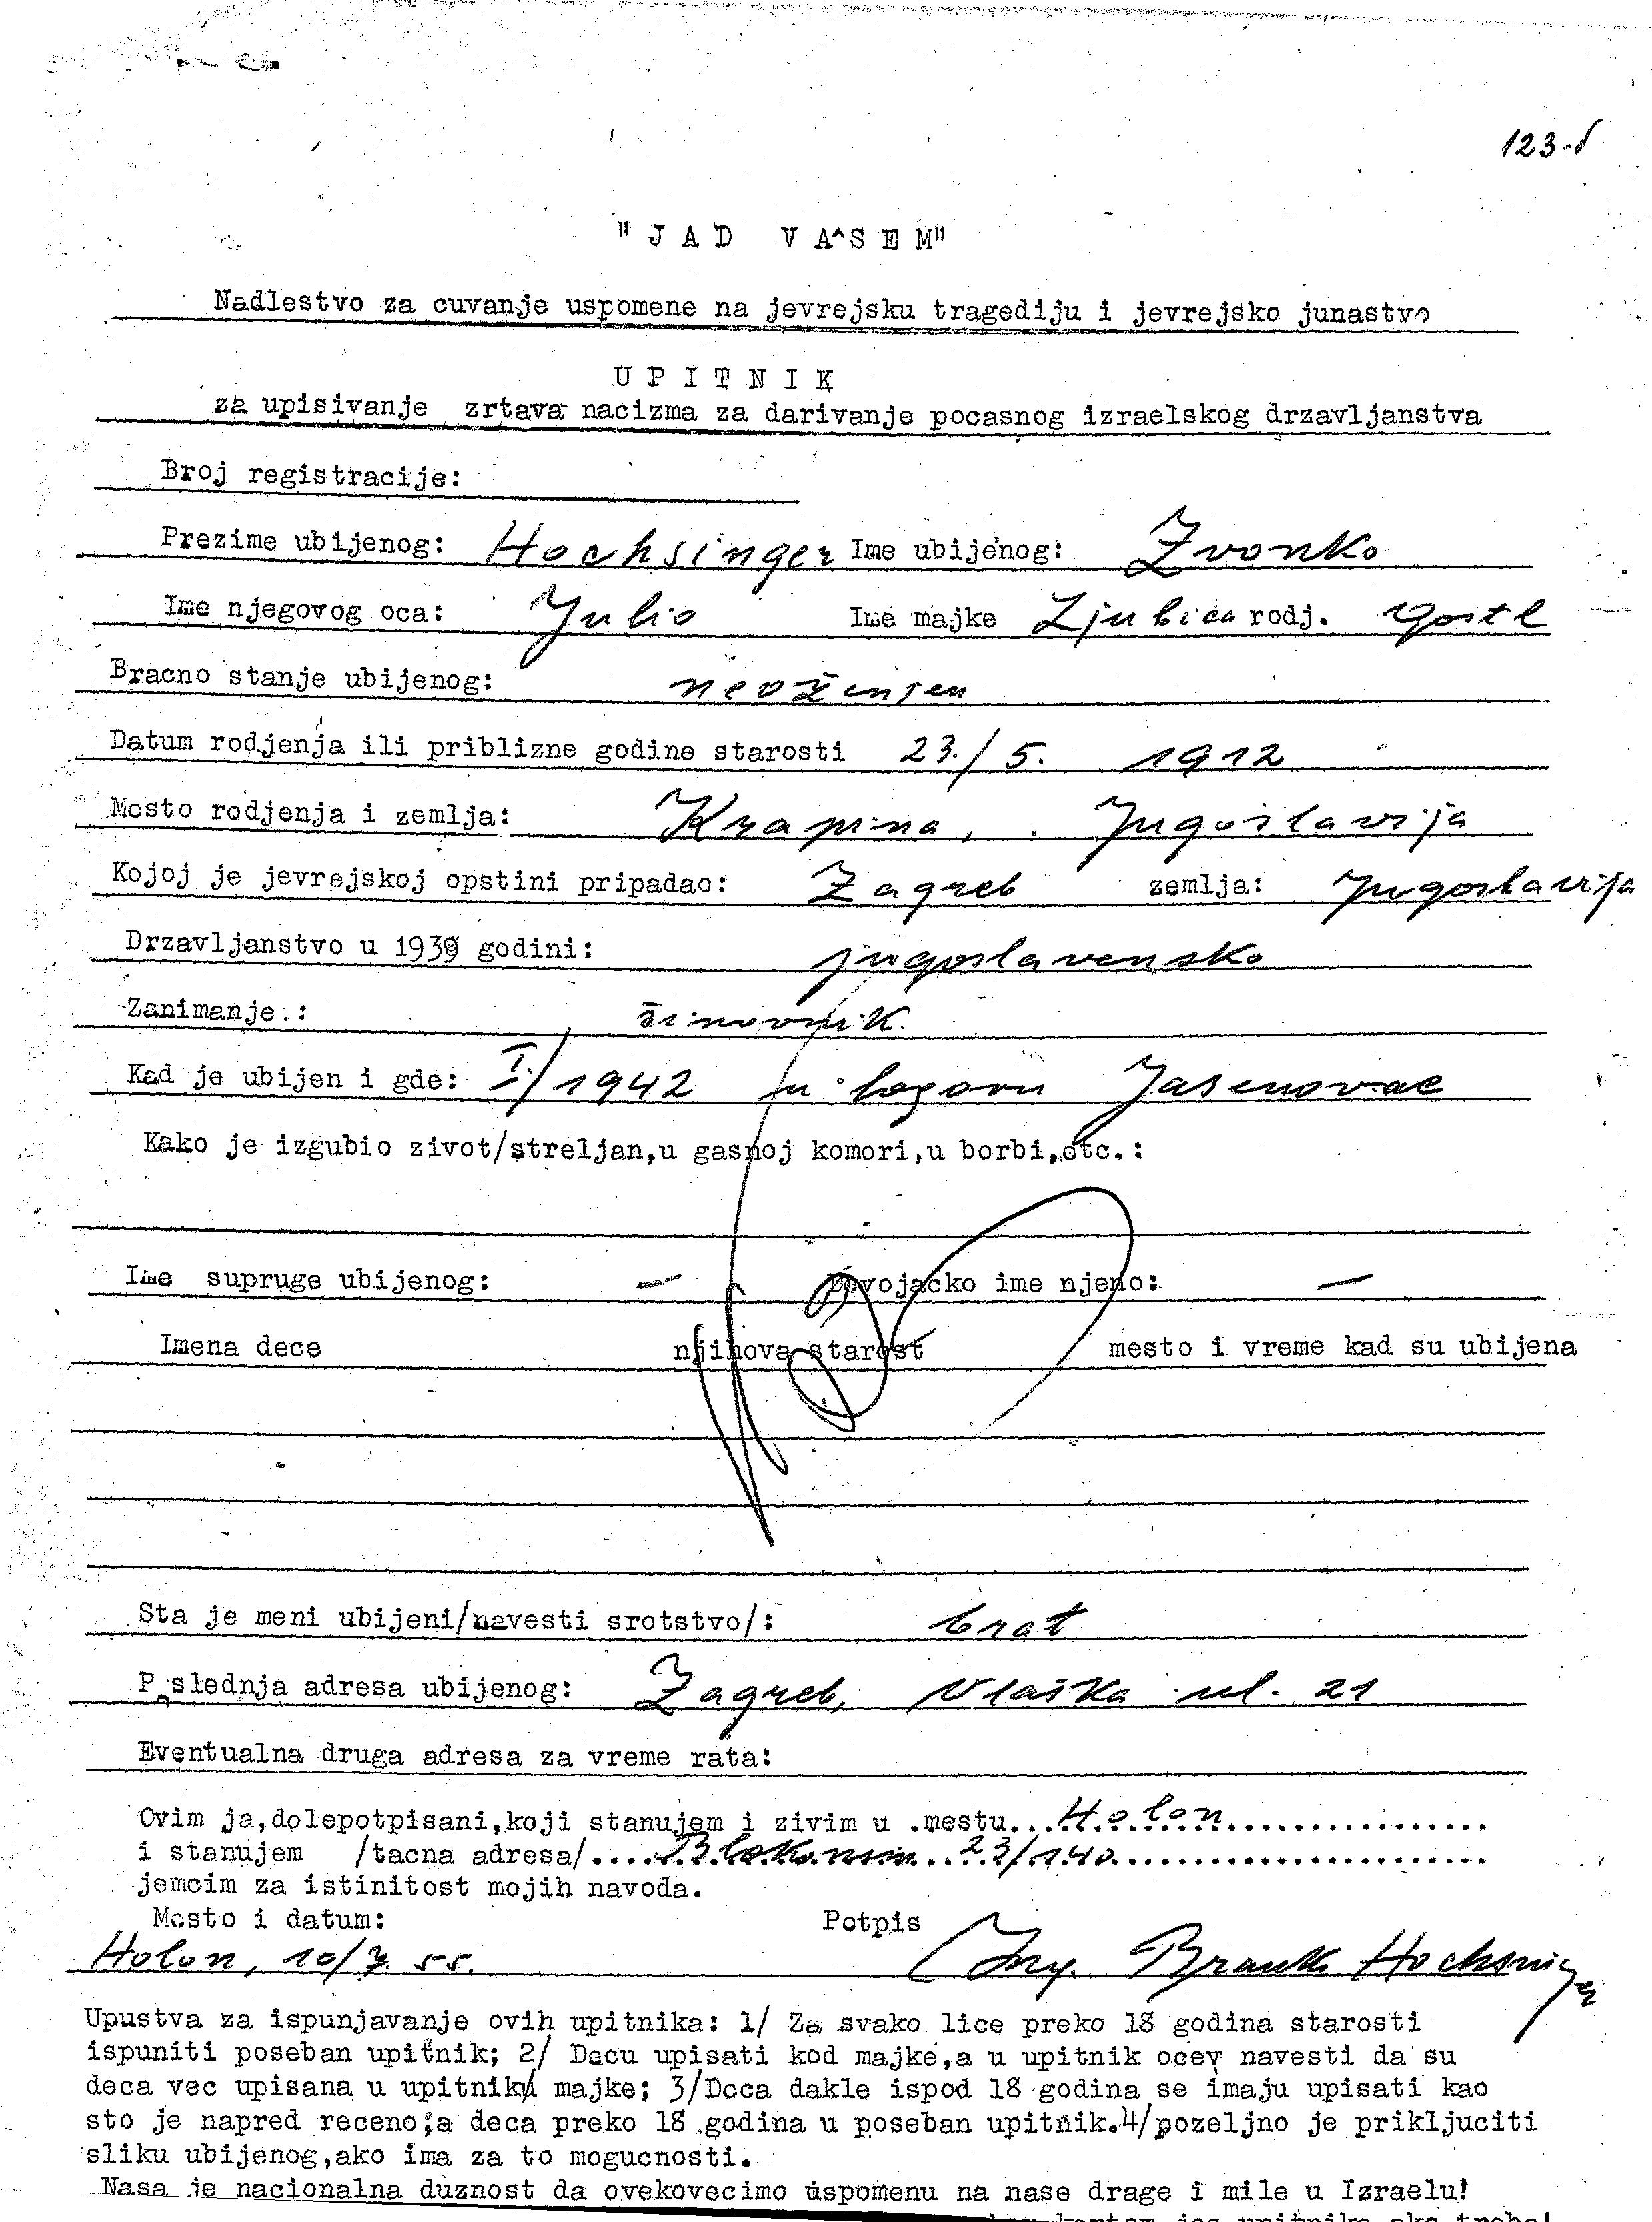 123-
"JAD VA^SEM"
Nadlestvo za cuvanje uspomene na jevrejsku tragediju i jevrejsko junastvo
UPITNIK
za upisivanje zrtava nacizma za darivanje pocasnog izraelskog drzavljanstva
Broj registracije:
Prezime ubijenog: Hochsinger Ime ubijenog: Zvonko
Ime njegovog oca: Julio Ime majke Ljubica rodj.
Bracno stanje ubijenog: neoženjen
Datum rodjenja ili priblizne godine starosti 23./5. 1912
Mesto rodjenja i zemlja: Krapina, Jugoslavija
Kojoj je jevrejskoj opstini pripadao: Zagreb zemlja: Jugoslavija
Drzavljanstvo u 1939 godini: jugoslavensko
Zanimanje.: činovnik.
Kad je ubijen i gde: I./1942 u logoru Jasenovac
Kako je izgubio zivot/streljan,u gasnoj komori,u borbi,etc.:
Ime supruge ubijenog: — Devojacko ime njeno: —
Imena dece njihova starost mesto i vreme kad su ubijena
Sta je meni ubijeni/navesti srotstvo/: brat
Poslednja adresa ubijenog: Zagreb, Vlaška ul. 21
Eventualna druga adresa za vreme rata:
Ovim ja,dolepotpisani,koji stanujem i zivim u .mestu...Holon................
i stanujem /tacna adresa/....Blokonim...23/140.......................
jemcim za istinitost mojih navoda.
Mesto i datum: Potpis
Holon, 10/ 55. Ing. Branko Hochsinger
Upustva za ispunjavanje ovih upitnika: 1/ Za svako lice preko 18 godina starosti
ispuniti poseban upitnik; 2/ Decu upisati kod majke,a u upitnik ocev navesti da su
deca vec upisana u upitniku majke; 3/Deca dakle ispod 18 godina se imaju upisati kao
sto je napred receno;a deca preko 18 .godina u poseban upitnik.4/pozeljno je prikljuciti
sliku ubijenog,ako ima za to mogucnosti.
Nasa je nacionalna duznost da ovekovecimo uspomenu na nase drage i mile u Izraelu!